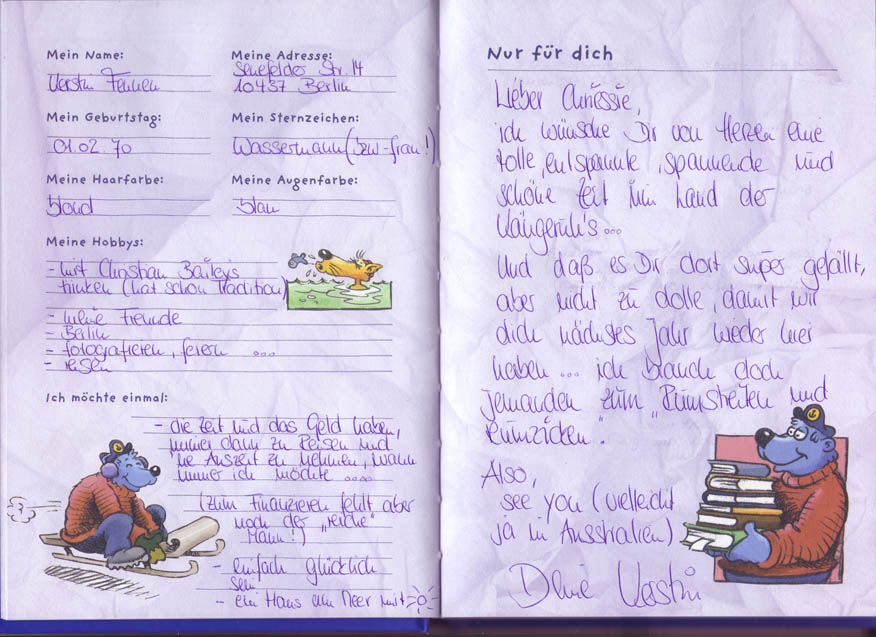 Mein Name:
Kerstin
Meine Adresse:
Senefelder Str. 14
10437 Berlin
Mein Geburtstag:
01.02.70
Mein Sternzeichen:
Wassermann (bzw-frau!)
Meine Haarfarbe:
blond
Meine Augenfarbe:
blau
Meine Hobbys:
- mit Christian Bailey's
trinken (hat schon Tradition)
- meine Freunde
- Berlin
- fotografieren, feiern ...
- reisen
Ich möchte einmal:
- die Zeit und das Geld haben,
immer dann zu Reisen und
'ne Auszeit zu nehmen, wann
immer ich möchte ....
(zum Finanzieren fehlt aber
noch der "reiche"
Mann!)
- einfach glücklich
sein
- ein Haus am Meer mit
Nur für dich
Lieber
ich wünsche Dir von Herzen eine
tolle, entspannte, spannende und
schöne Zeit im Land der
Känguruh's ...
Und daß es Dir dort super gefällt,
aber nicht zu dolle, damit wir
dich nächstes Jahr wieder hier
haben ... ich brauch doch
jemanden zum "Rumstreiten und
Rumzicken".
Also,
see you (vielleicht
ja in Australien)
Deine Kerstin